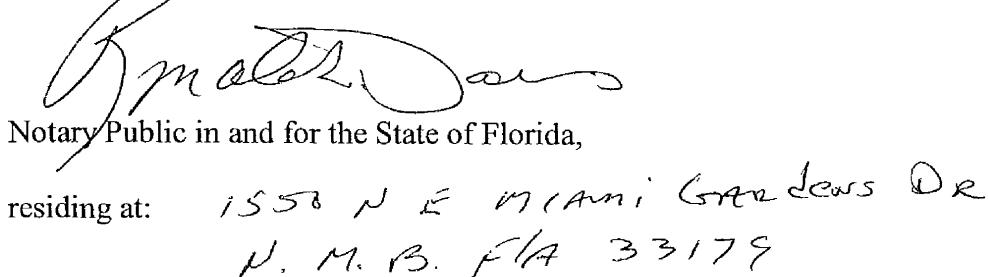 Notary Public in and for the State of Florida,
residing at: 1550 N E MIAMI GARDENS DR
N. M. B. FlA 33179